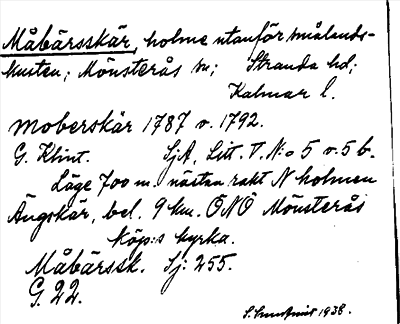 Måbärsskär, holme utanför smålands-
kusten; Mönsterås sn; Stranda hd;
Kalmar l.
Moberskär 1787 o. 1792.
G. Klint. SjA, Litt. V. N:o 5 o. 5 b.
Läge 700 m. nästan rakt N holmen
Ängskär, bel. 9 km. ÖNÖ Mönsterås
köp:s kyrka.
Måbärssk. Sj: 255.
G. 22.
1938.